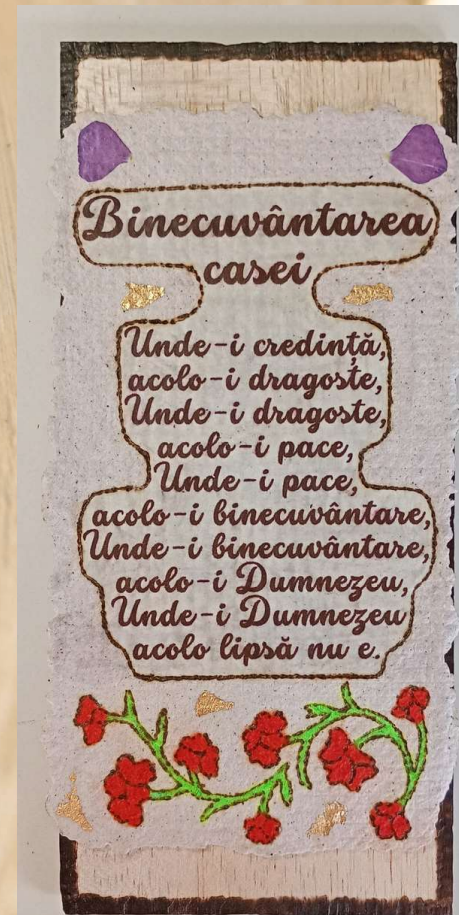 Binecuvântarea
casei
Unde-i credință,
acolo-i dragoste,
Unde-i dragoste,
acolo-i pace,
Unde-i pace,
acolo-i binecuvântare,
Unde-i binecuvântare,
acolo-i Dumnezeu,
Unde-i Dumnezeu
acolo lipsă nu e.